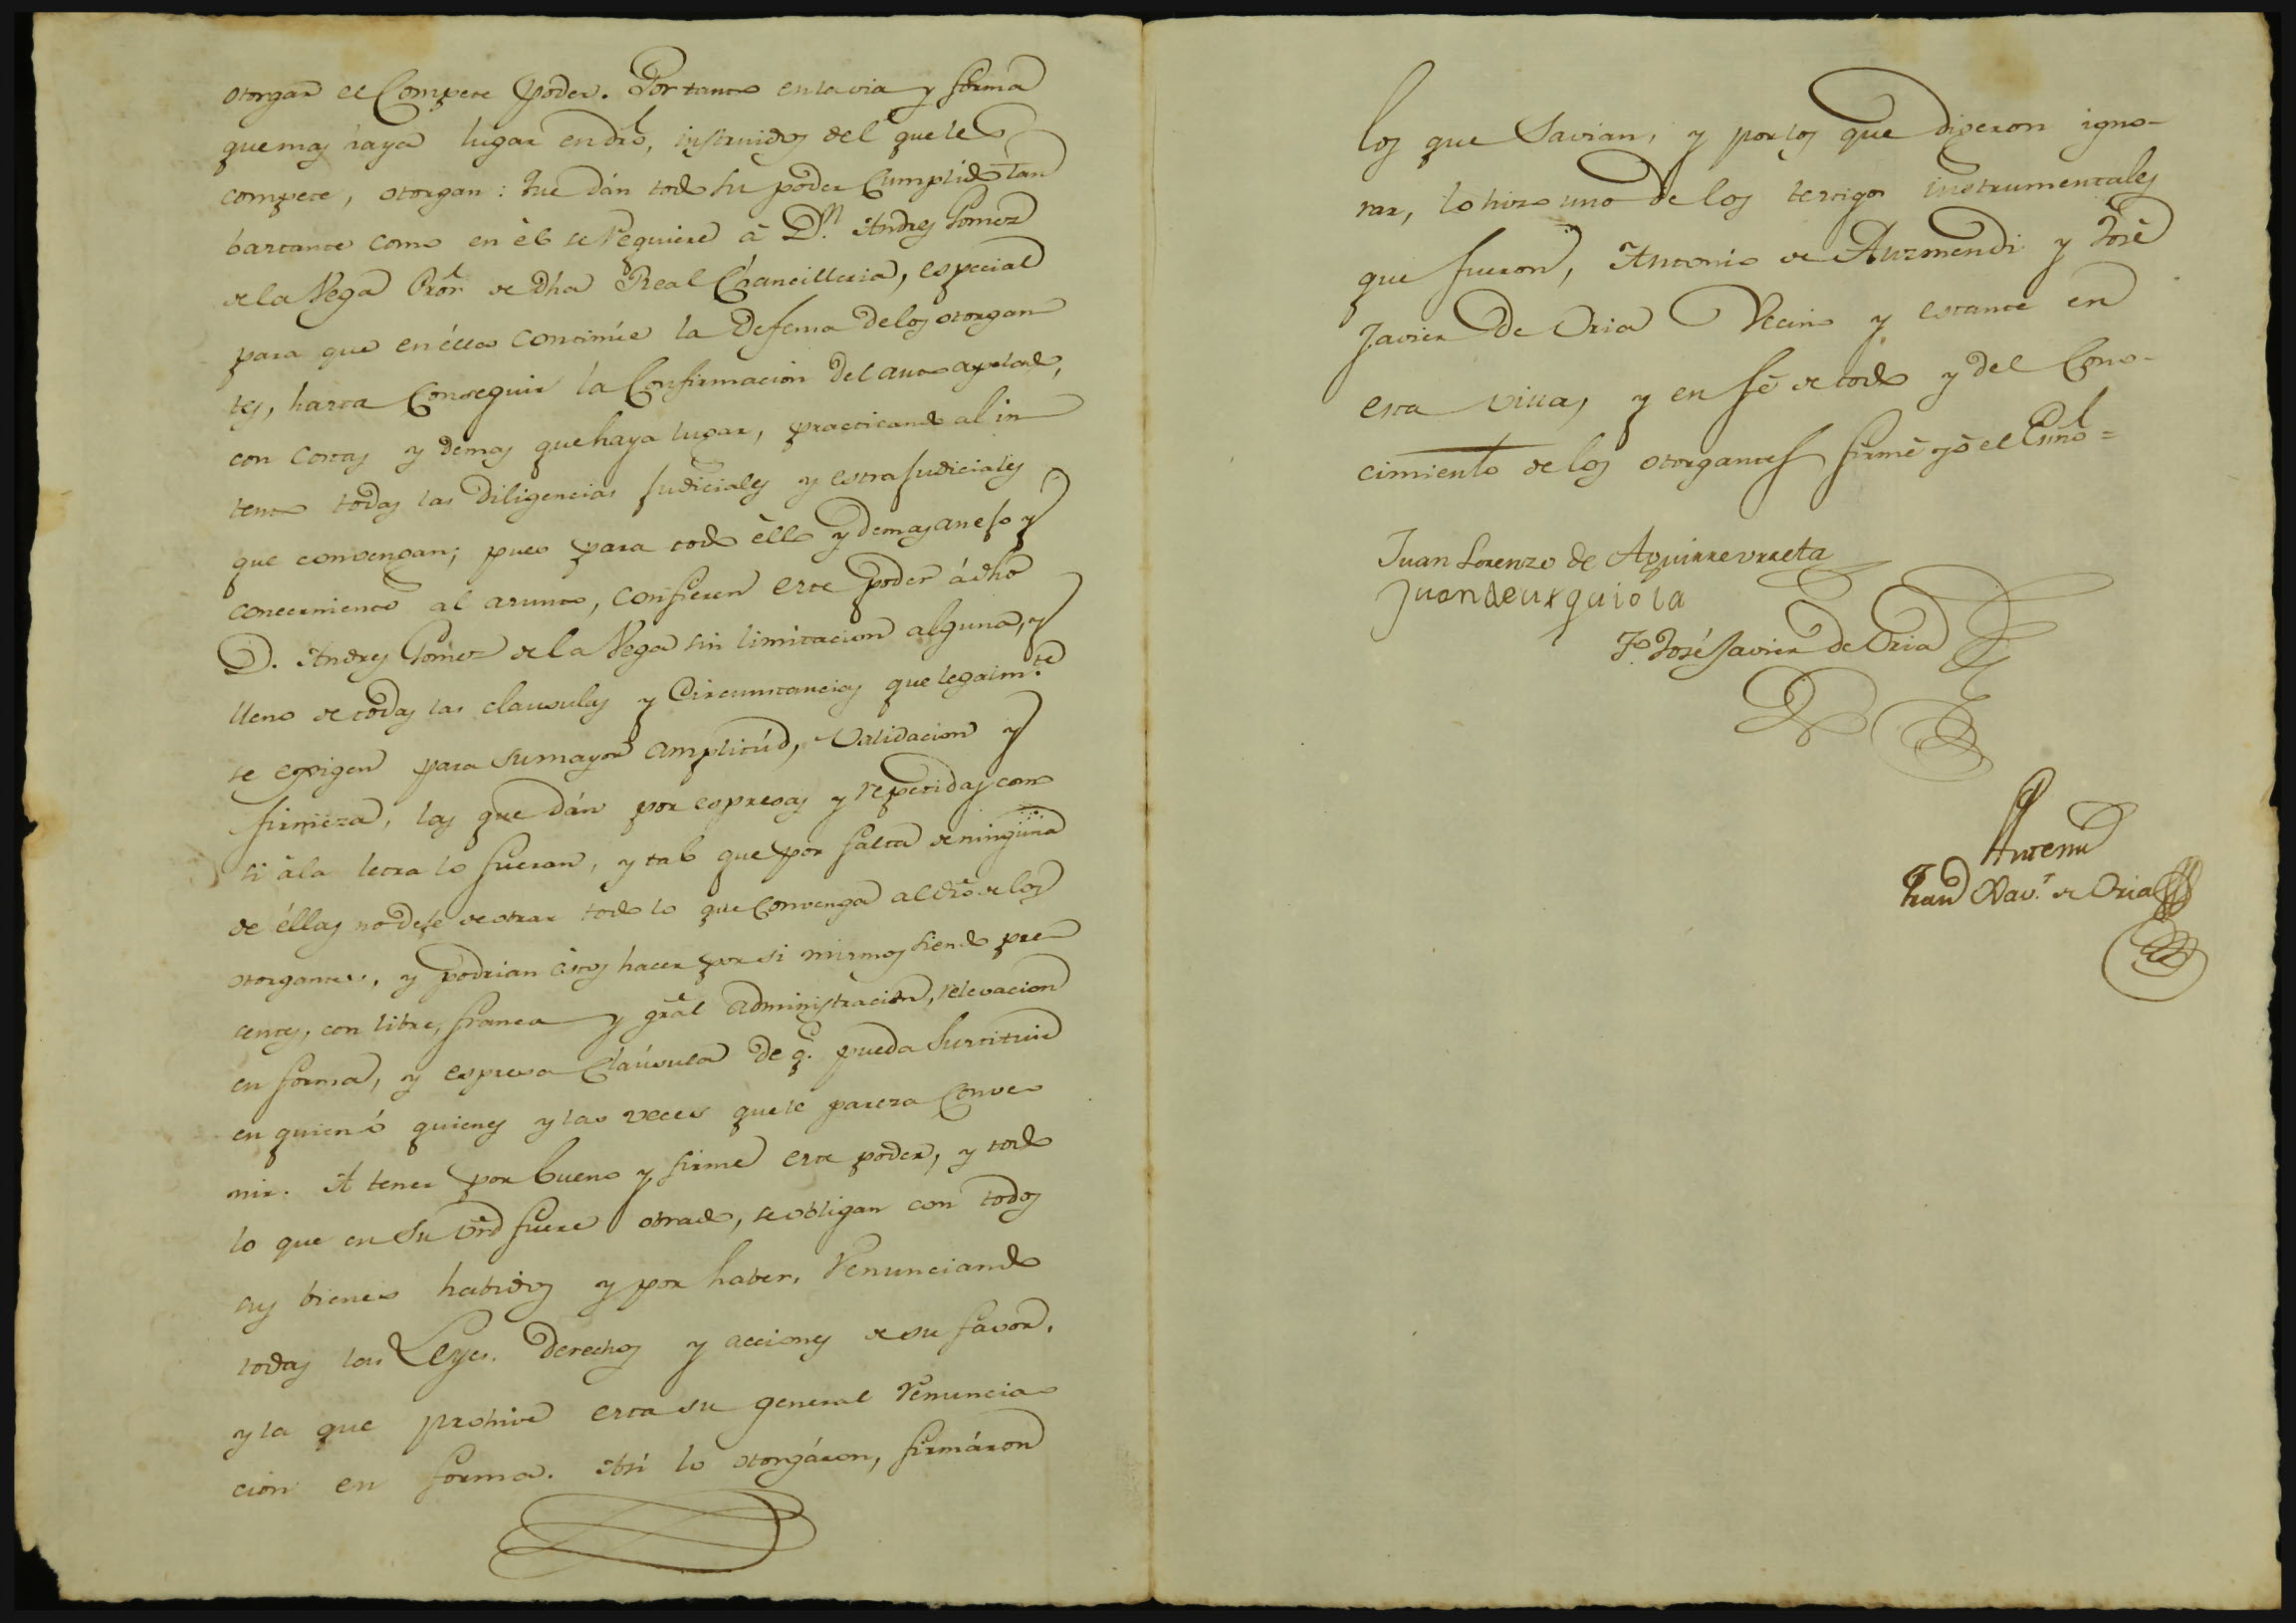 otorgar el Compete poder. Por tanto en la via y forma
que mas haya lugar en dro, instruidos del que les
compete, otorgan: Que dán todo su poder Cumplido tan
bastante como en èl se requiere á D.n Andres Gomez
de la Vega Pror. de dha Real Chancilleria, especial
para que en élla continúe la Defensa de los otorgan
tes, hasta Conseguir la Confirmacion del auto apelado,
con costas y demas que haya lugar, practicando al in
tento todas las Diligencias Judiciales y estraJudiciales
que convengan; pues para todo èllo y demas anejo y
concerniente al asunto, confieren este poder á dho
D. Andres Gomez de la Vega sin limitacion alguna, y
lleno de todas las clausulas y Circunstancias que legalm.te
se exigen para su mayor amplitúd, validacion y
firmeza, las que dán por espresas y repetidas como
si àla letra lo fueran, y tal que por falta de ninguna
de éllas no deje de obrar todo lo que Convenga al dro de los
otorgantes, y podrian éstos hacer por si mismos siendo pre
centes, con libre, franca y gral administracion, relevacion
en forma, y espresa Claúsula de q.e pueda Sustituir
en quien ó quienes y las veces que le paresca Conve
nir. A tener por bueno y firme este poder, y todo
lo que en su vrd fuere obrado, se obligan con todos
sus bienes habidos y por haber, Renunciando
todas las Leyes. Derechos y acciones de su favor,
y la que prohive esta su general Renuncia
cion en forma. Asi lo otorgáron, firmáron
los que Savian, y por los que dijeron igno-
rar, lo hizo uno de los testigos instrumentales
que fueron, Antonio de Auzmendi y José
Javier de Oria Vecino y estante en
esta villa, y en fé de todo y del Cono-
cimiento de los otorgantes firmé yó el Esno =
Juan Lorenzo de Aguirreurreta
Juan de urquiola
T.o José Javier de Oria
Antemi
Fran.co Xav.r de Oria